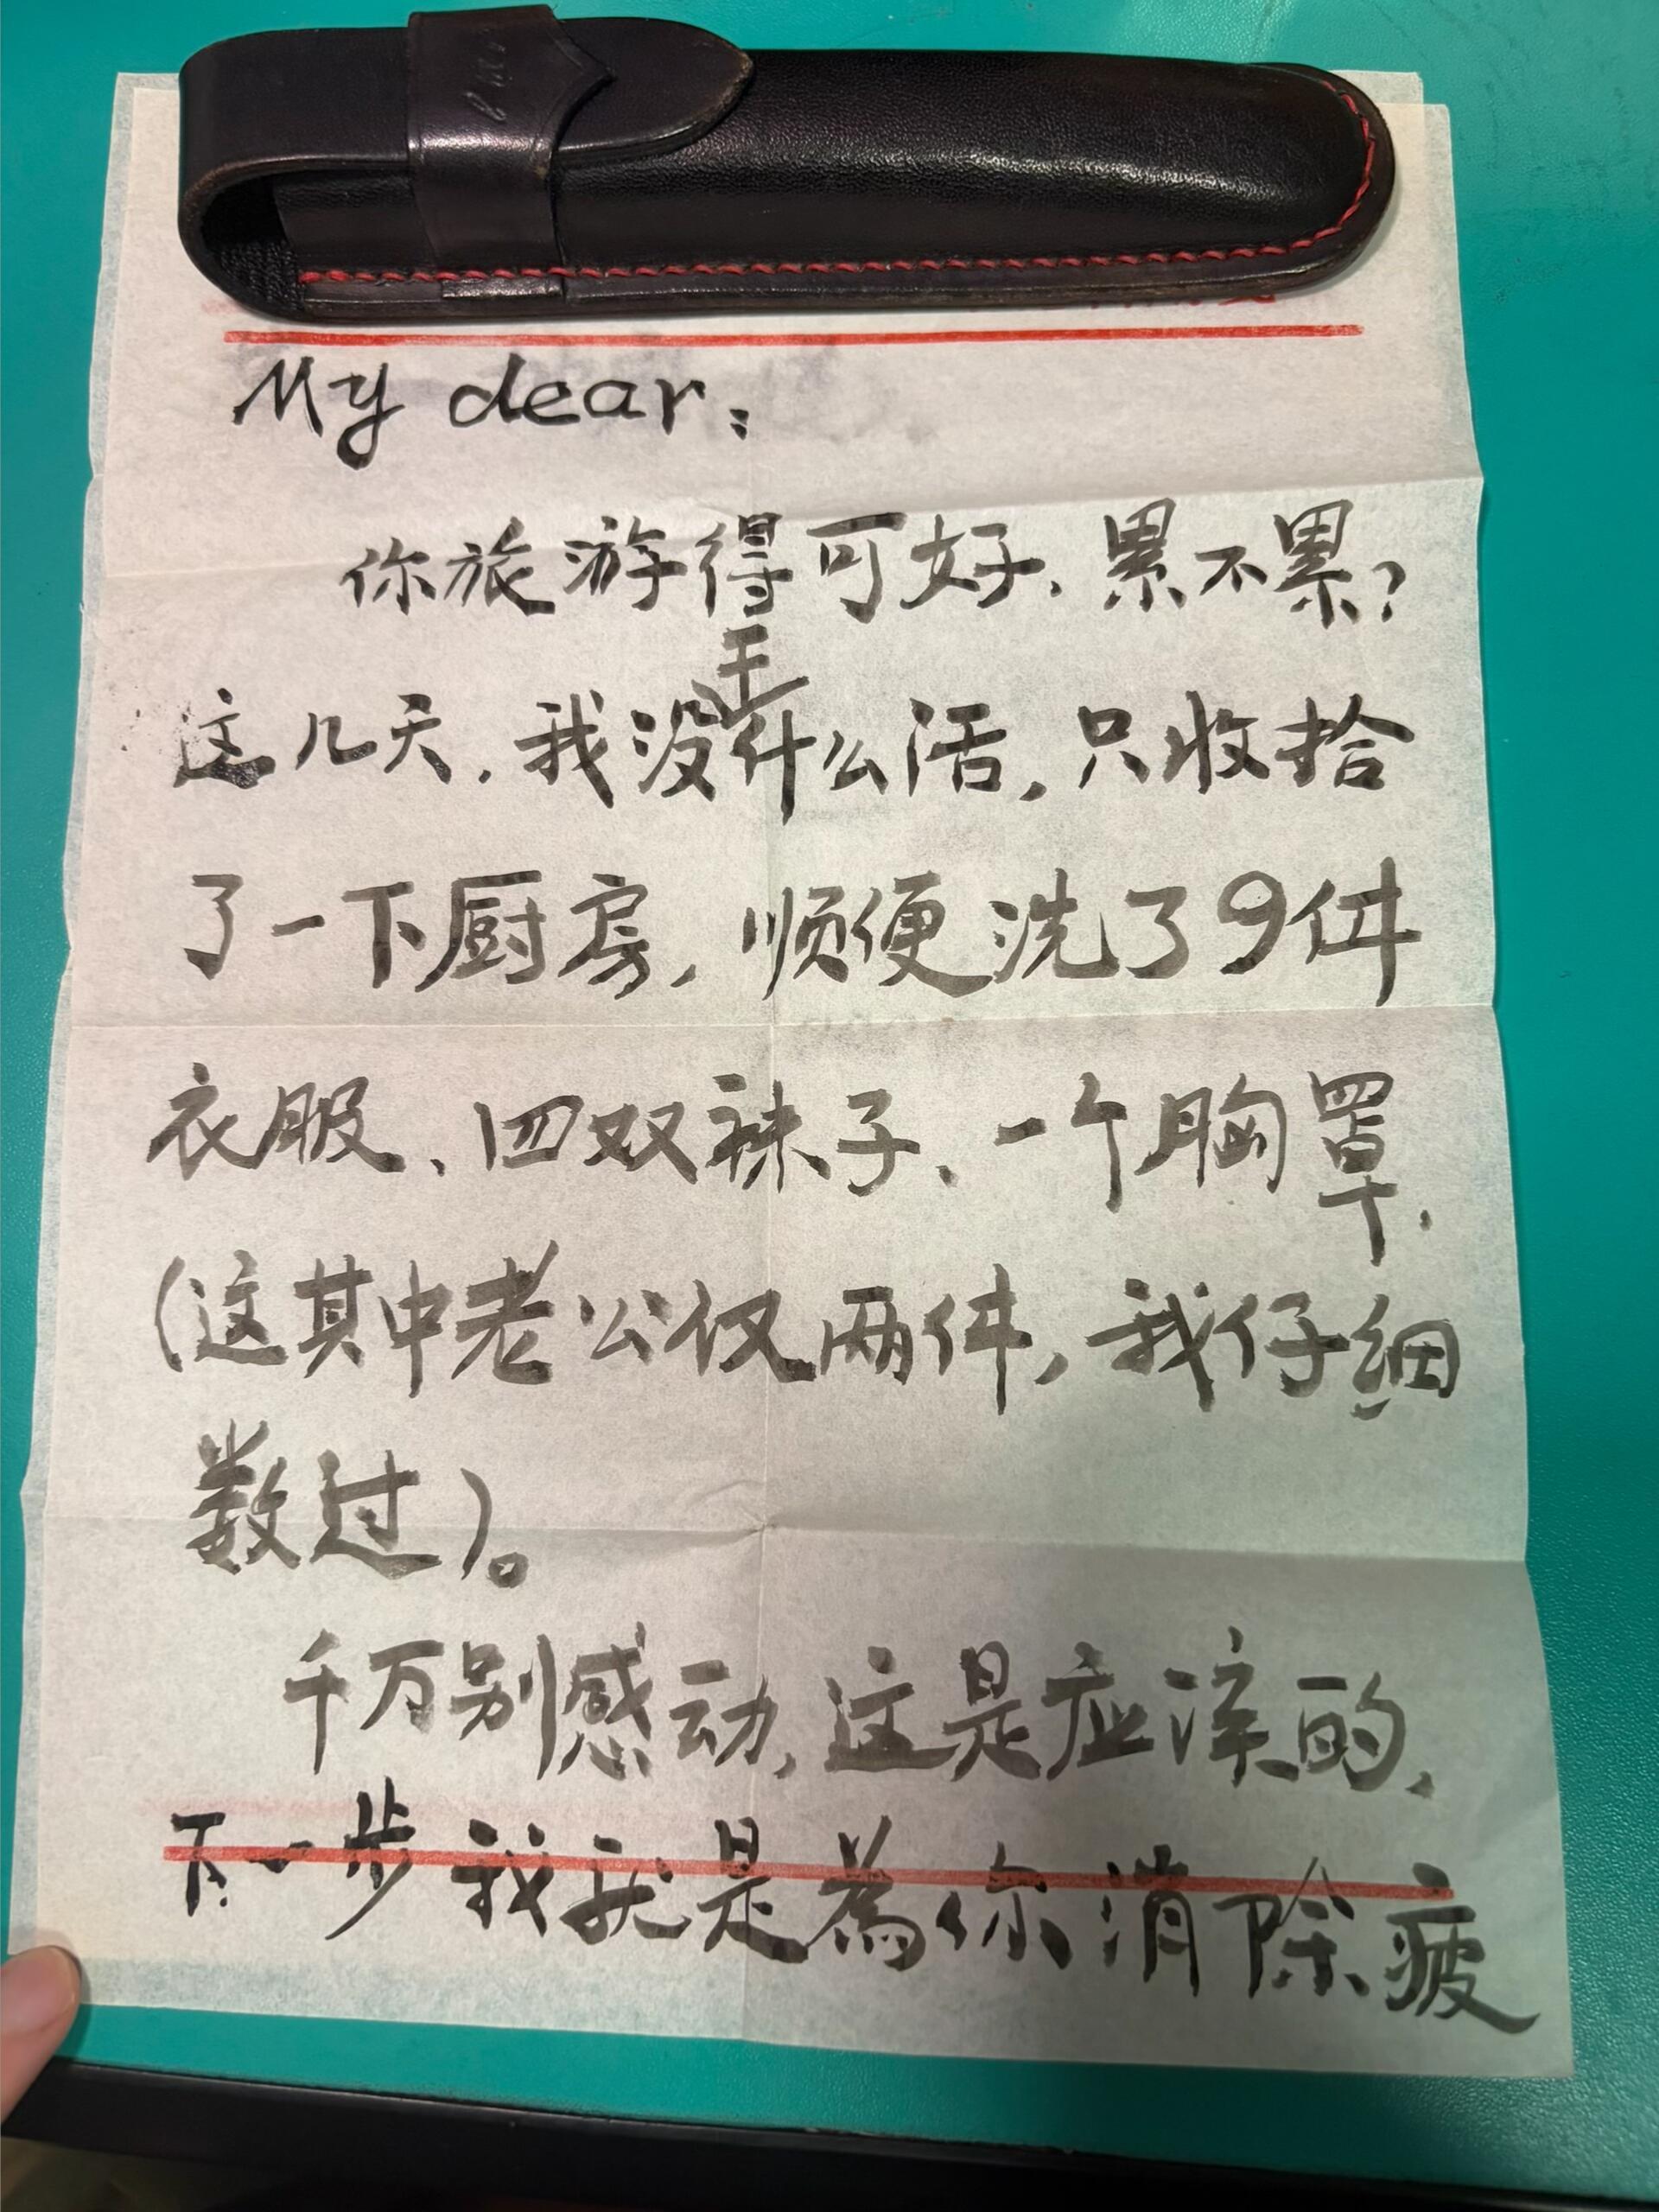 My dear:
你旅游得可好、累不累?
这几天,我没干什么活,只收拾
了一下厨房,顺便洗了9件
衣服、四双袜子、一个胸罩.
(这其中老公仅两件,我仔细
数过)。
千万别感动,这是应该的,
下一步我就是為你消除疲